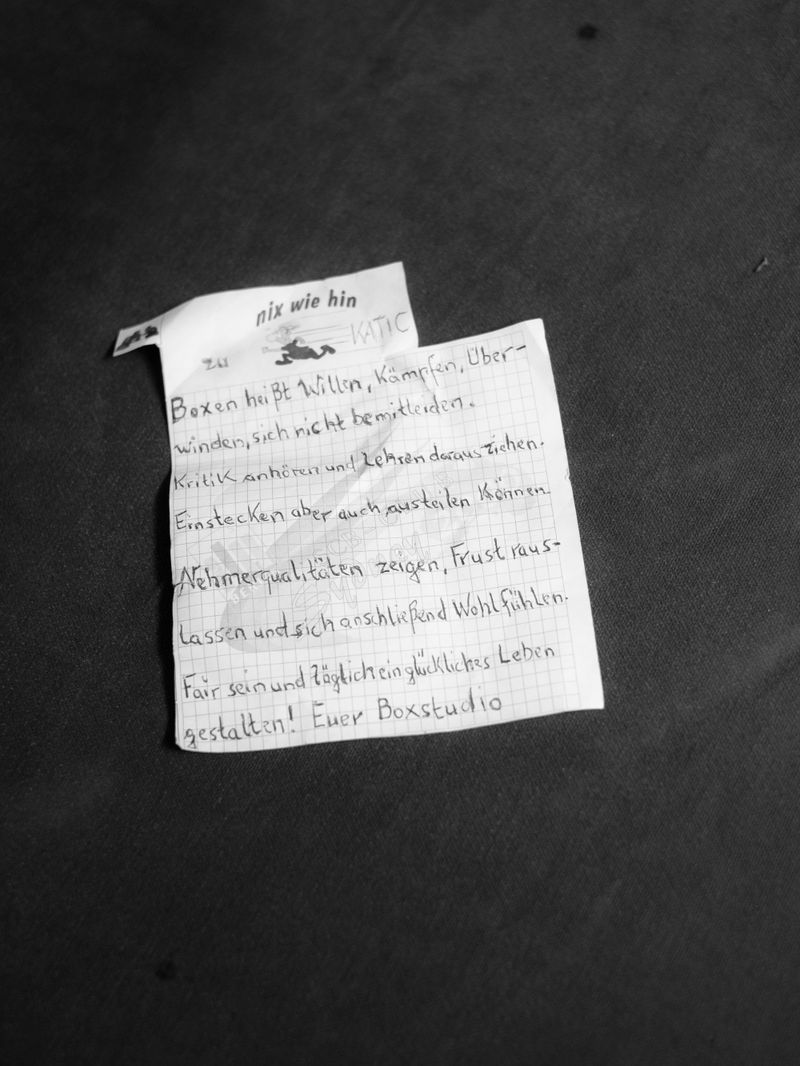 nix wie hin
zu KATIC
Boxen heißt Willen, Kämpfen, Über-
winden, sich nicht bemitleiden.
Kritik anhören und Lehren daraus ziehen.
Einstecken aber auch austeilen Können
Nehmerqualitäten zeigen, Frust raus-
lassen und sich anschließend Wohlfühlen.
Fair sein und täglich ein glückliches Leben
gestalten! Euer Boxstudio